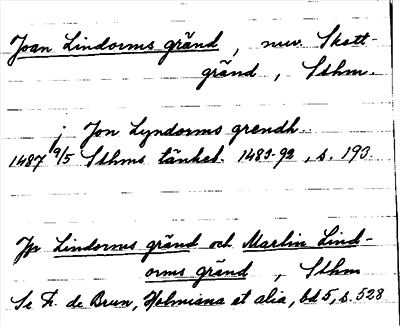 Joan Lindorms gränd, nuv. Skott-
gränd, Sthm.
i Jon Lyndorms grendh.
1487 9/5 Sthms tänkeb. 1483-92, s. 193.
Jfr Lindorms gränd och Martin Lind-
orms gränd, Sthm
Se F. de Brun, Holmiana et alia, bd 5, s. 528